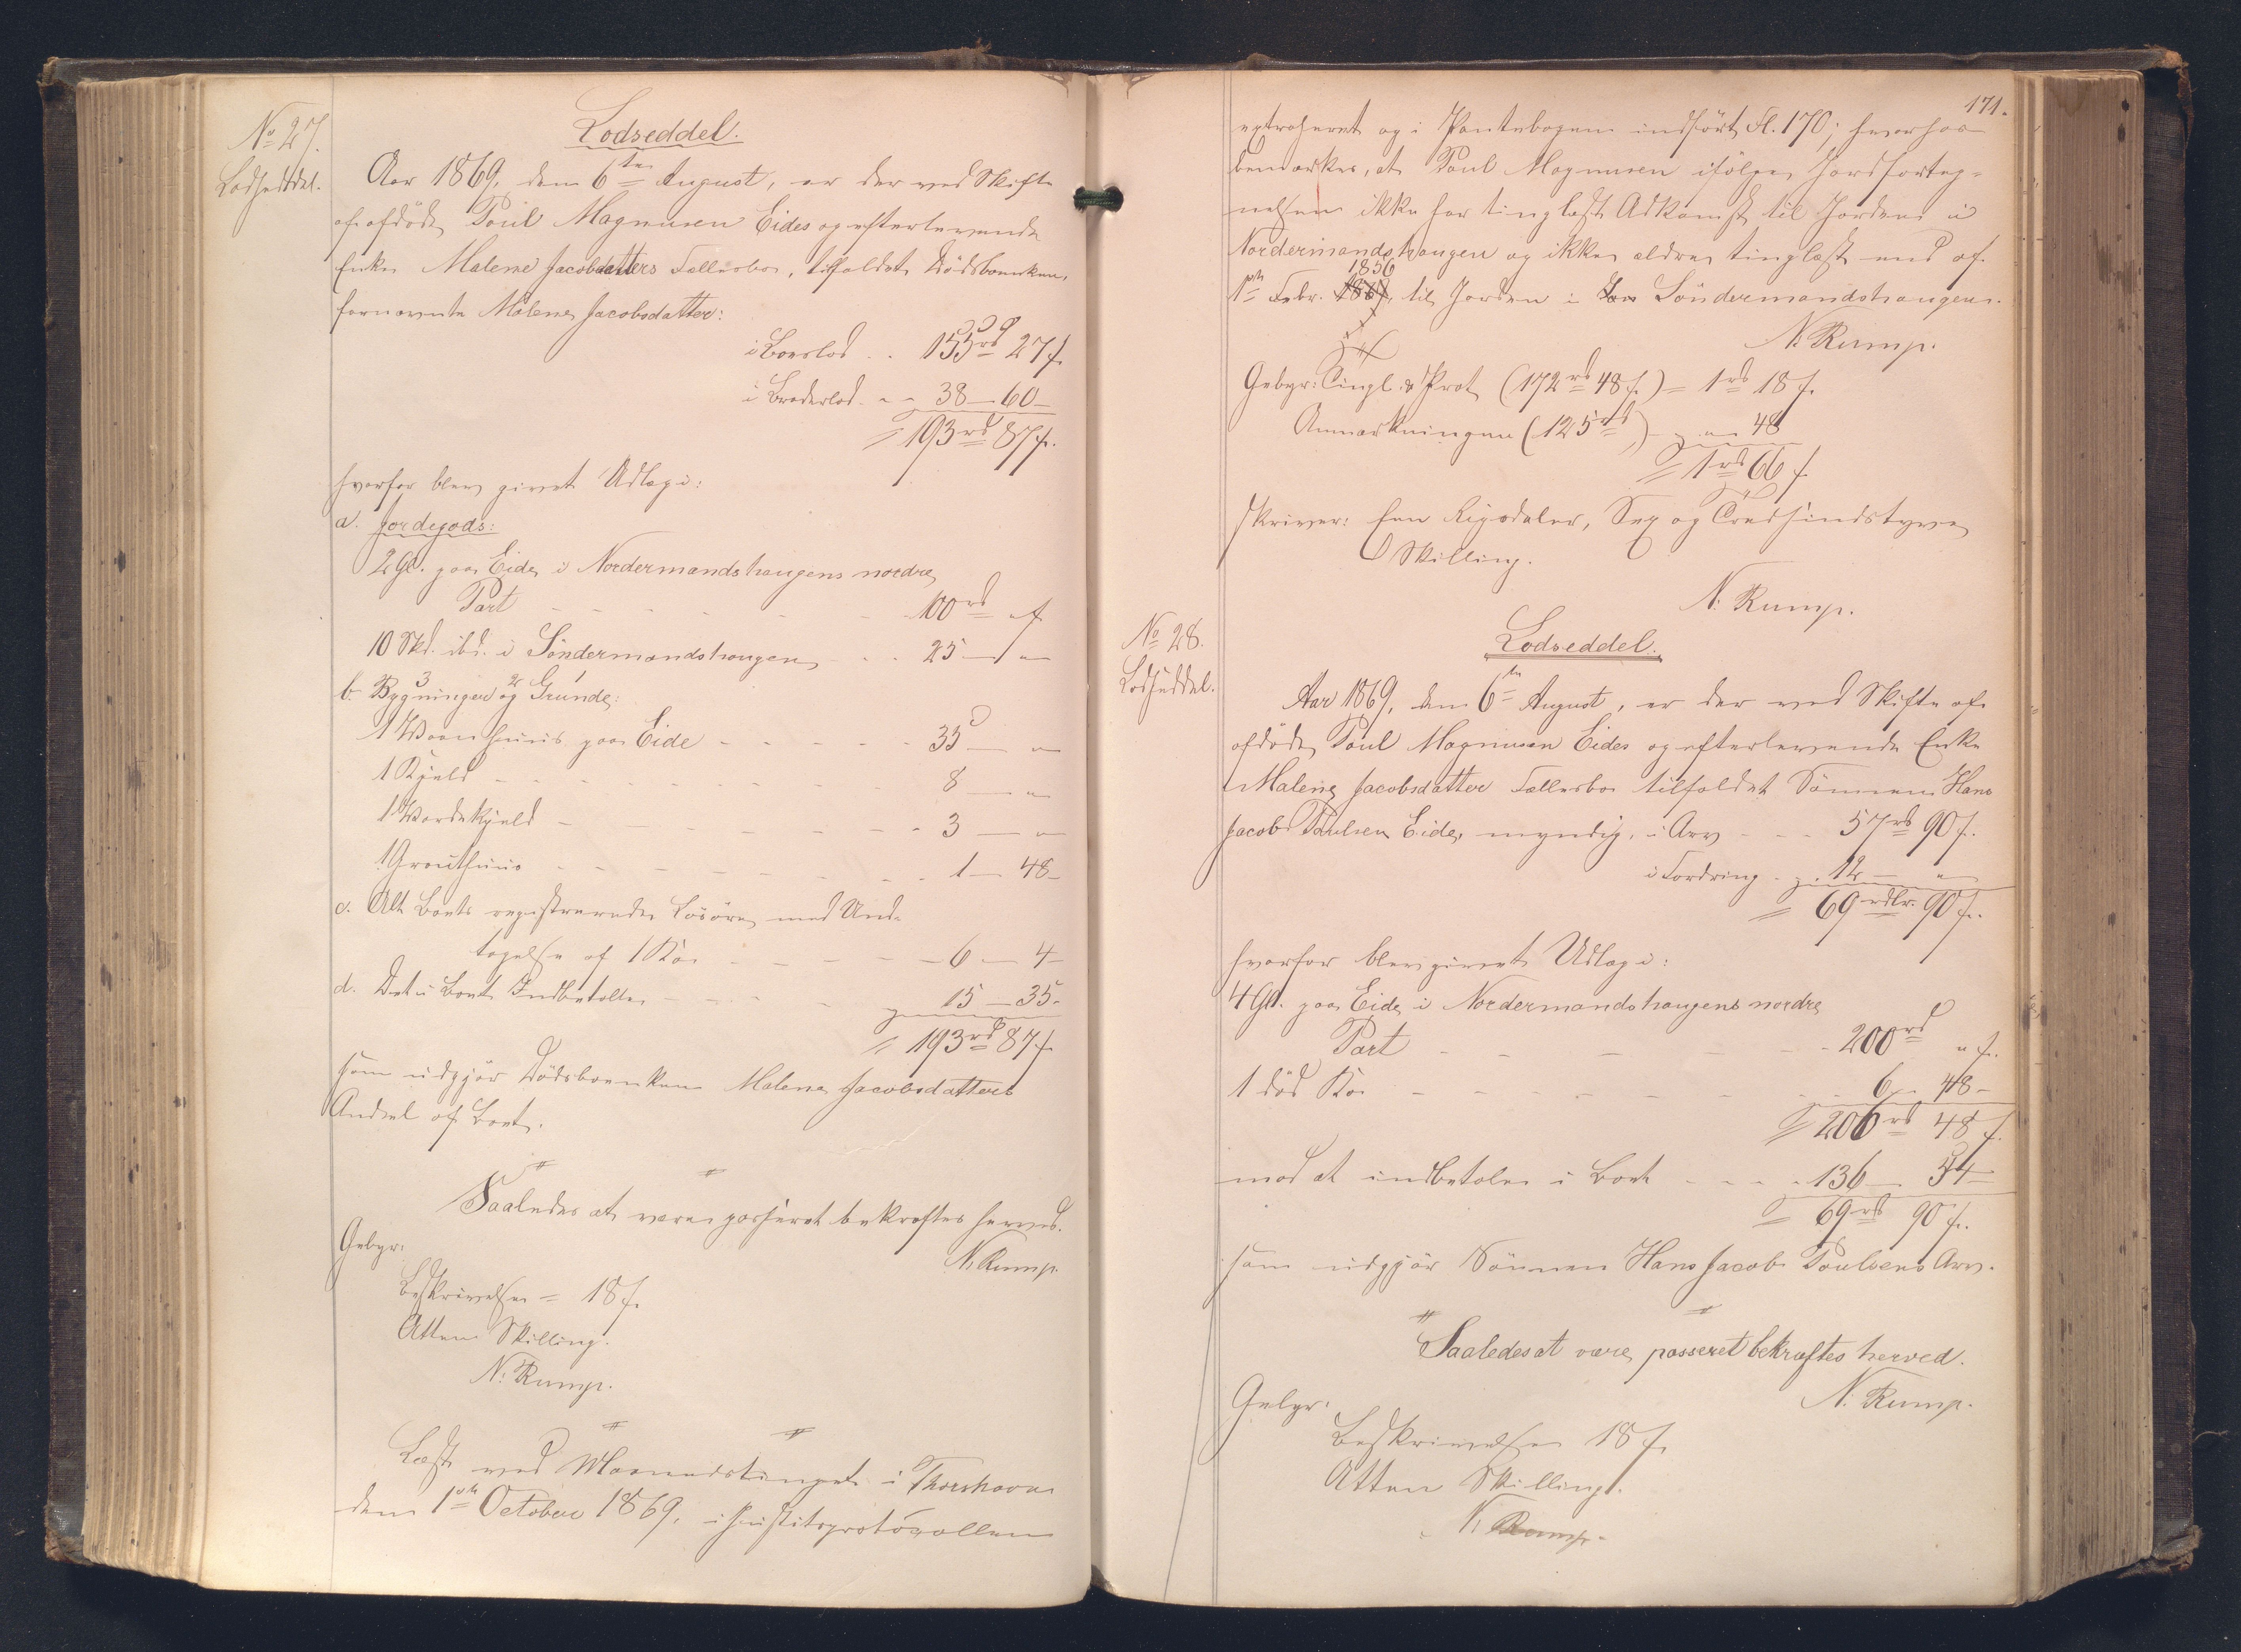 No 27.
Lodseddel.
Lodseddel.
Aar 1869, den 6te August, er der ved Skifte
af afdøde Poul Magnusen Eides og efterlevende
Enke Malene Jacobsdatters Fællesbo, tilfaldet Dødsboenken,
fornævnte Malene Jacobsdatter:
i Boeslod . . 155rd 27ſ.
i Broderlod - - 38 — 60 —
= 193rd 87ſ.
hvorfor blev givet Udlæg i:
a. Jordegods:
2 Gl. paa Eide i Nordermandshaugens nordre
Part - - - - - 100rd „ ſ.
10 Skd. ibd. i Söndermandshaugen - - - 25 — „
b. Bygninger og Grunde:
3 2 1
1 Vaanhuus paa Eide - - - - - 35 — „
1 Kjeld - - - - - - - 8 — „
1 Wordekjeld - - - - - - - 3 — „
1 Grouthuus - - - - - - - 1 — 48 —
c. Alt Boets registrerede Lösöre med Und-
tagelse af 1 Ko - - - - - 6 — 4 —
d. Det i Boet Indbetalte - - - - 15 — 35 -
= 193rd 87ſ.
som udgjør Dödsboenken Malene Jacobsdatters
Andeel af Boet.
Saaledes at være passeret bekræftes herved.
N. Rump.
Gebyr:
Beskrivelsen = 18ſ.
Atten Skilling.
N. Rump.
Læst ved Maanedstinget i Thorshavn
den 1ste October 1869, i Justitsprotocollen
171.
extraheret og i Pantebogen indført Fl. 170; hvorhos
bemærkes, at Poul Magnusen ifølge Jordforteg-
nelsen ikke har tinglæst Adkomst til Jorden i
Nordermandshaugen og ikke ældre tinglæst end af
1856
1ste Febr. 1867, til Jorden i Söndermandshaugen.
N. Rump.
Gebyr: Tingl. & Prot. (172rd 48ſ.) = 1rd 18ſ.
Anmærkningen (125rd) - „ - 48
= 1rd 66ſ.
skriver: Een Rigsdaler, Sex og Tredsindstyve
Skilling.
N. Rump.
No 28.
Lodseddel.
Lodseddel.
Aar 1869, den 6te August, er der ved Skifte af
afdøde Poul Magnusen Eides og efterlevende Enke
Malene Jacobsdatter Fællesbo tilfaldet Sönnen Hans
Jacob Poulsen Eide, myndig, i Arv - - - 57rd 90ſ.
i Fordring - - 12 — „
= 69rdlr. 90ſ.
hvorfor blev givet Udlæg i:
4 Gl. paa Eide i Nordermandshaugens nordre
Part - - - - - 200rd „ ſ.
1 död Ko - - - - - - - 6 - 48 -
= 206rd 48ſ.
mod at indbetale i Boet - - - - 136 — 54 —
= 69rd 90ſ.
som udgjør Sönnen Hans Jacob Poulsens Arv.
Saaledes at være passeret bekræftes herved.
N. Rump.
Gebyr:
Beskrivelsen 18ſ.
Atten Skilling.
N. Rump.